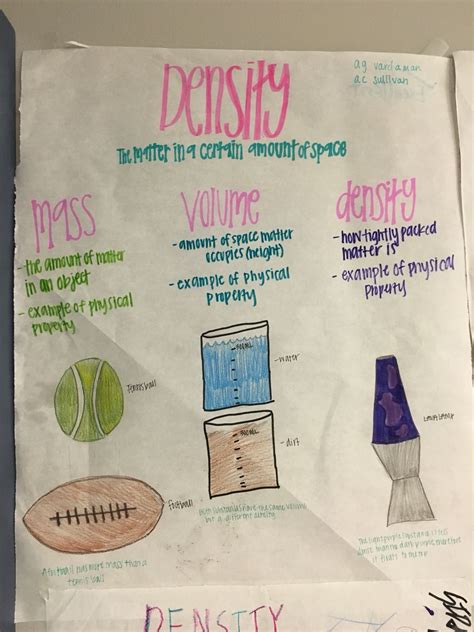 ag vardaman
ac sullivan
Density
The matter in a certain amount of space
mass
- the amount of matter
in an object
- example of physical
property
volume
- amount of space matter
occupies (height)
- example of physical
property
density
- how tightly packed
matter is
- example of physical
property
Tennis ball
football
A football has more mass than a
tennis ball
- water
- dirt
Both substances have the same volume
but a different density
Lava Lamp
The light purple
dense than the dark purple, therefore
it floats to the top
DENSITY